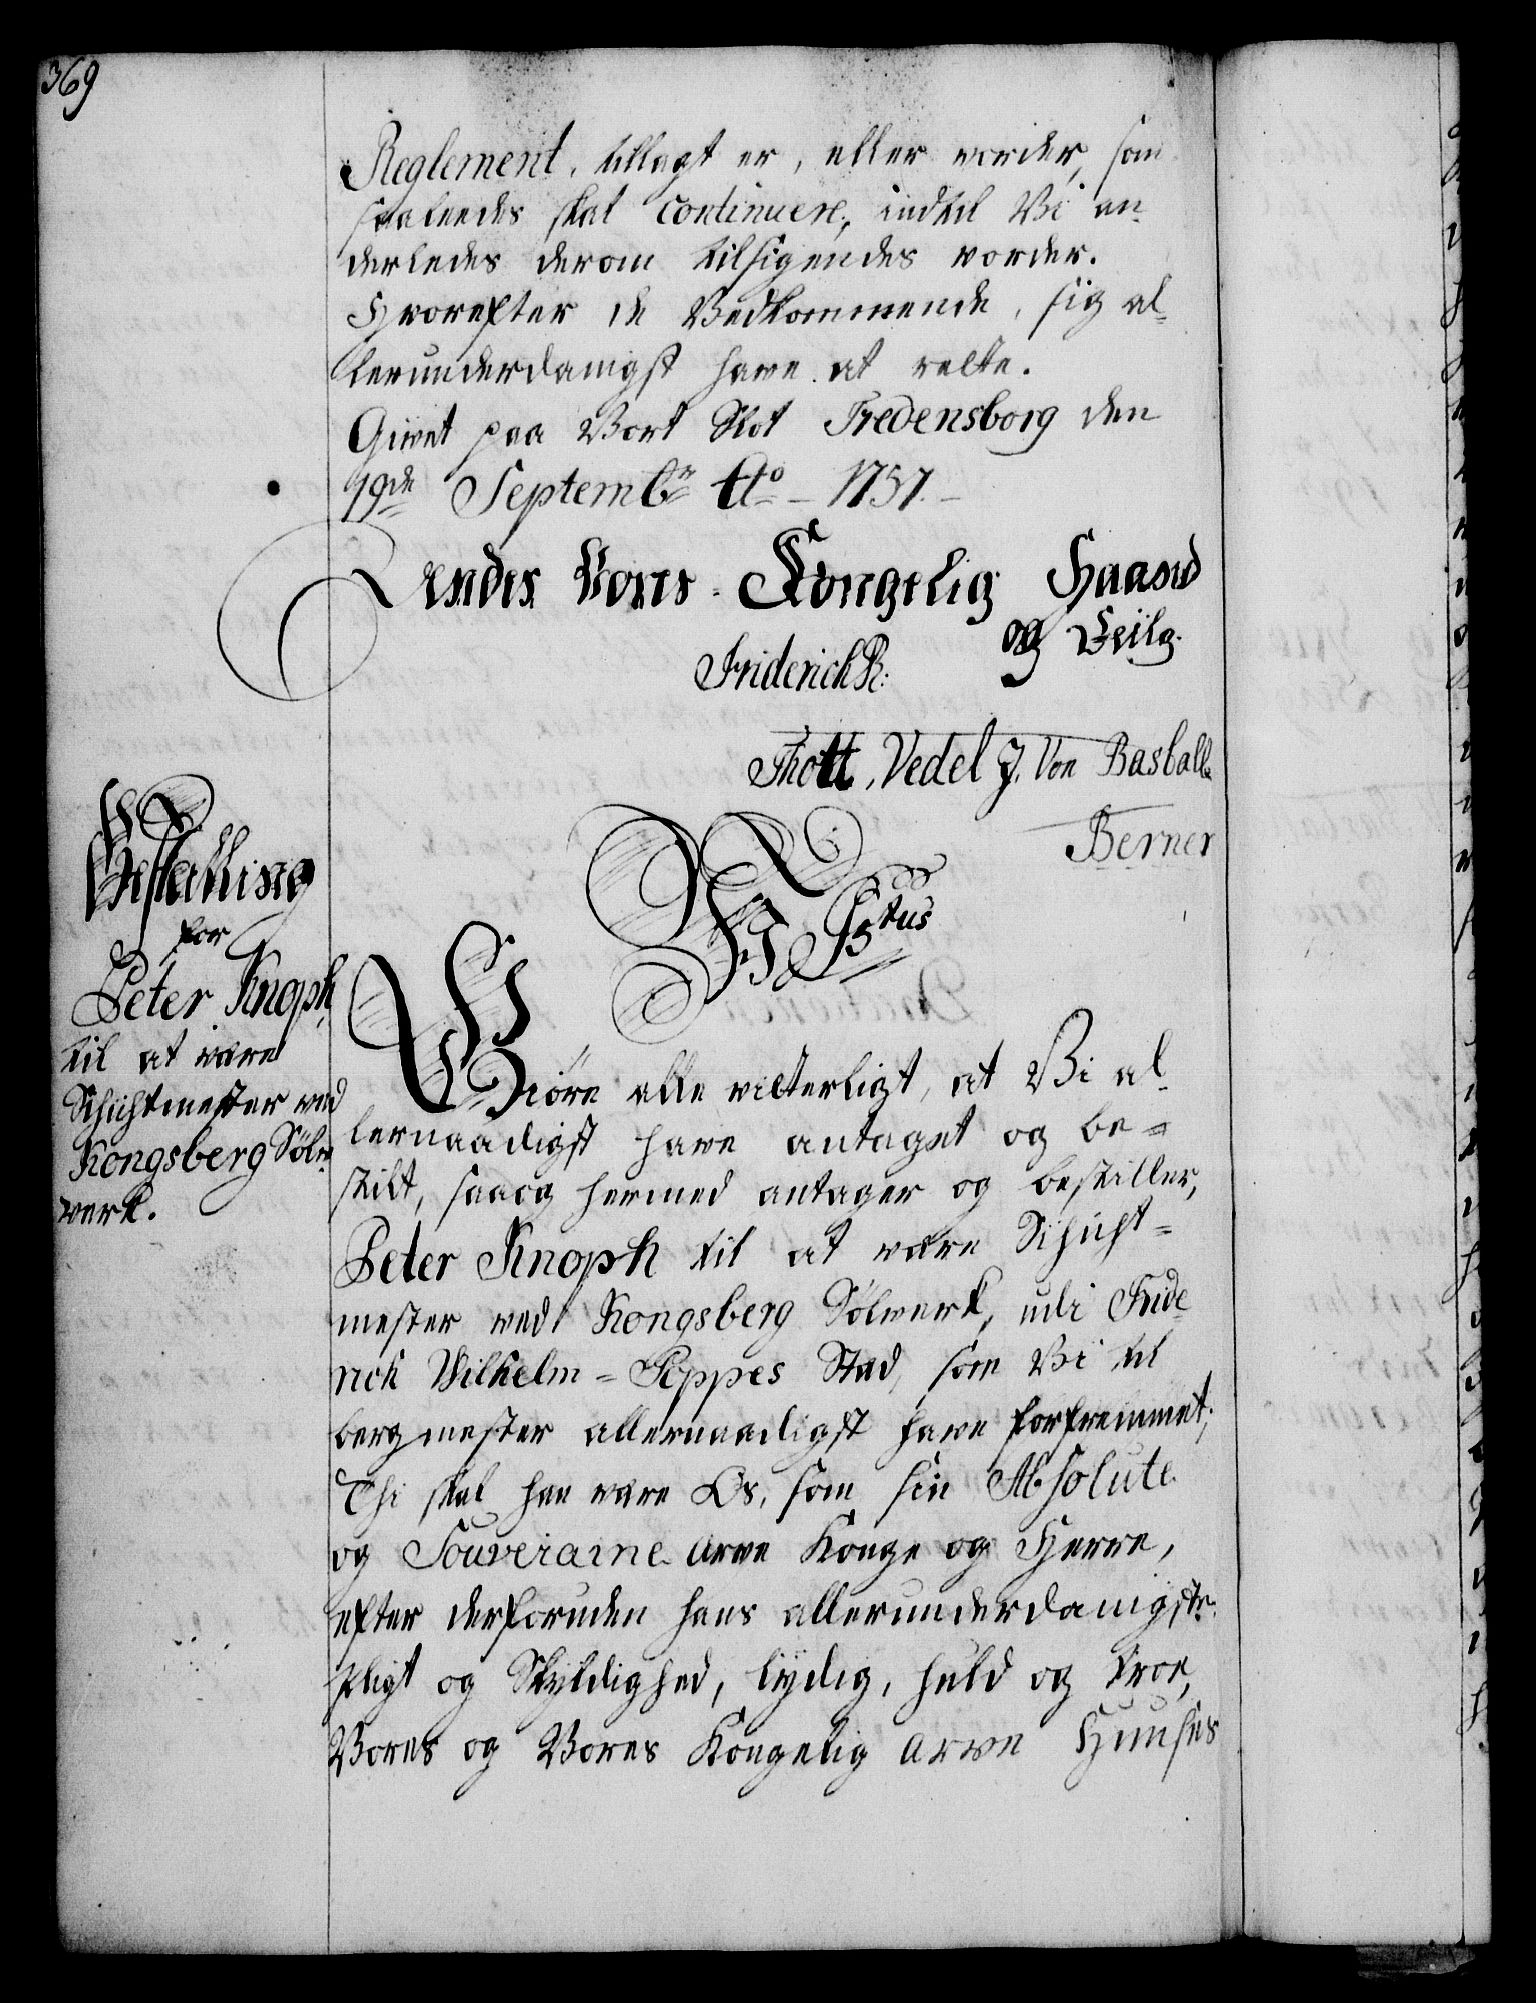 369
Reglement, tillagt er, eller vorder, som
saaledes skal continuere, indtil Vi an-
derledes derom tilsigendes vorder.
Hvorefter de Vedkommende, sig al-
lerunderdanigst have at rette.
Givet paa Vort Slot Fredensborg den
19de Septembr Ao - 1757. -
Under Vores Kongelig Haand
og Seigl.
Friderich R:
Thott, Vedel J. Von Basballe
Berner
Bestalling
for
Peter Knoph,
til at være
Schichtmester ved
Kongsberg Sølv-
værk.
F 5tus
Giøre alle vitterligt, at Vi al-
lernaadigst have antaget og be-
stilt, saaog hermed antager og bestiller,
Peter Knoph til at være Schicht-
mester ved Kongsberg Sølwerk, udi Fride-
rich Wilhelm Peppes Stad, som Vi til
bergmester allernaadigst have forfremmet;
Thi skal han være Os, som sin Absolute
og Souveraine Arve Konge og Herre,
efter derforuden hans allerunderdanigste
Pligt og Skyldighed, lydig, huld og troe,
Vores og Vores Kongelig Arve Huuses